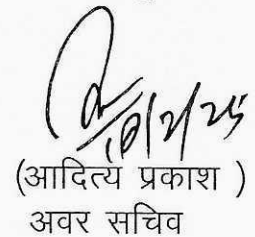 10/2/25
(आदित्य प्रकाश )
अवर सचिव